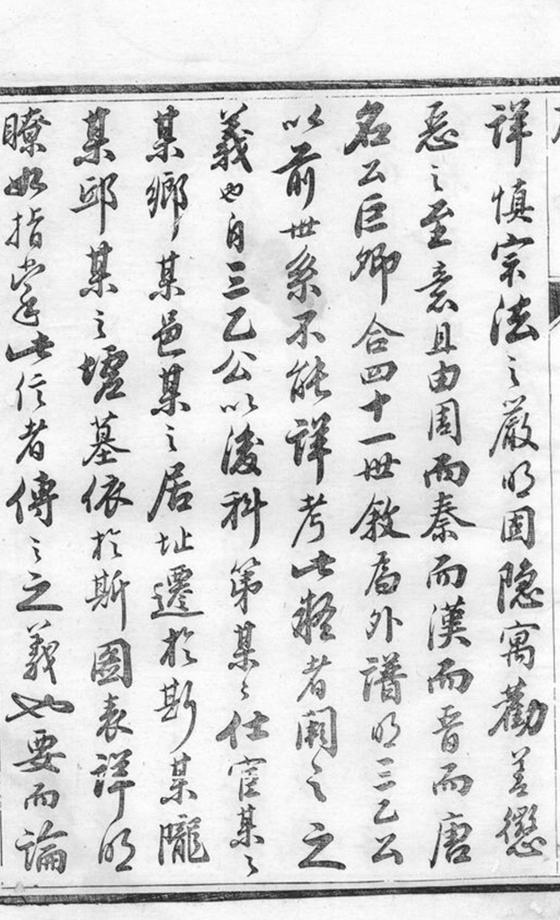 詳慎宗法之嚴明固隱寓勸善懲
惡之至意且由周而秦而漢而晉而唐
名公巨卿合四十一世敘為外譜明三乙公
以前世系不能詳考此疑者闕之之
義也自三乙公以後科第某々仕宦某々
某鄉某邑某之居址遷於斯某隴
某邱某之墟墓依於斯圖表詳明
瞭如指掌此信者傳之之義也要而論